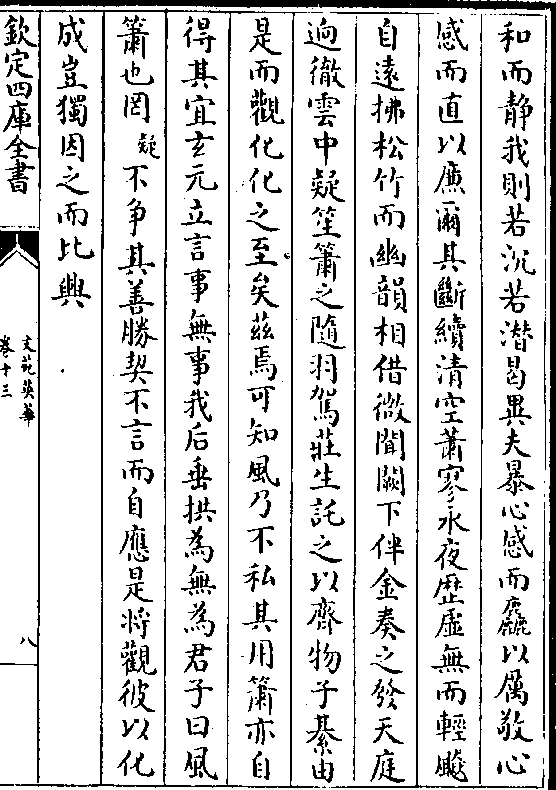 和而静我則若沉若潛曷異夫暴心感而麤以厲敬心
感而直以廉爾其斷續清空蕭寥永夜歴虛無而輕颺
自遠拂松竹而幽韻相借微聞闕下伴金奏之發天庭
逈徹雲中疑笙簫之隨羽駕莊生託之以齊物子綦由
是而觀化化之至矣茲焉可知風乃不私其用簫亦自
得其宜玄元立言事無事我后垂拱為無為君子曰風
簫也罔疑不争其善勝契不言而自應是将觀彼以化
成豈獨因之而比興
欽定四庫全書
文苑英華
卷十三
八